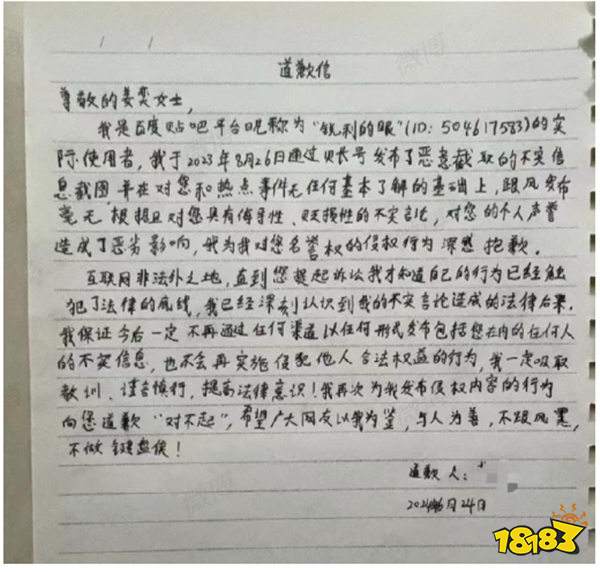 道歉信
尊敬的姜雯女士,
我是百度贴吧平台昵称为"锐利的眼"(ID:504617583)的实
际使用者,我于2023年8月26日通过贝长号发布了恶意截取的不实信
息截图并在对您和热点事件无任何基本了解的基础上,跟风发布
毫无根据且对您具有侮辱性、贬损性的不实言论,对您的个人声誉
造成了恶劣影响,我为我对您名誉权的侵权行为深感抱歉。
互联网非法外之地,直到您提起诉讼我才知道自己的行为已经触
犯了法律的底线,我已经深刻认识到我的不实言论造成的法律后果。
我保证今后一定不再通过任何渠道以任何形式发布包括您在内的任何人
的不实信息,也不会再实施侵犯他人合法权益的行为,我一定吸取
教训、谨言慎行,提高法律意识!我再次为我发布侵权内容的行为
向您道歉"对不起",希望广大网友以我为鉴,与人为善,不跟风黑,
不做键盘侠!
道歉人:
月24日
18183